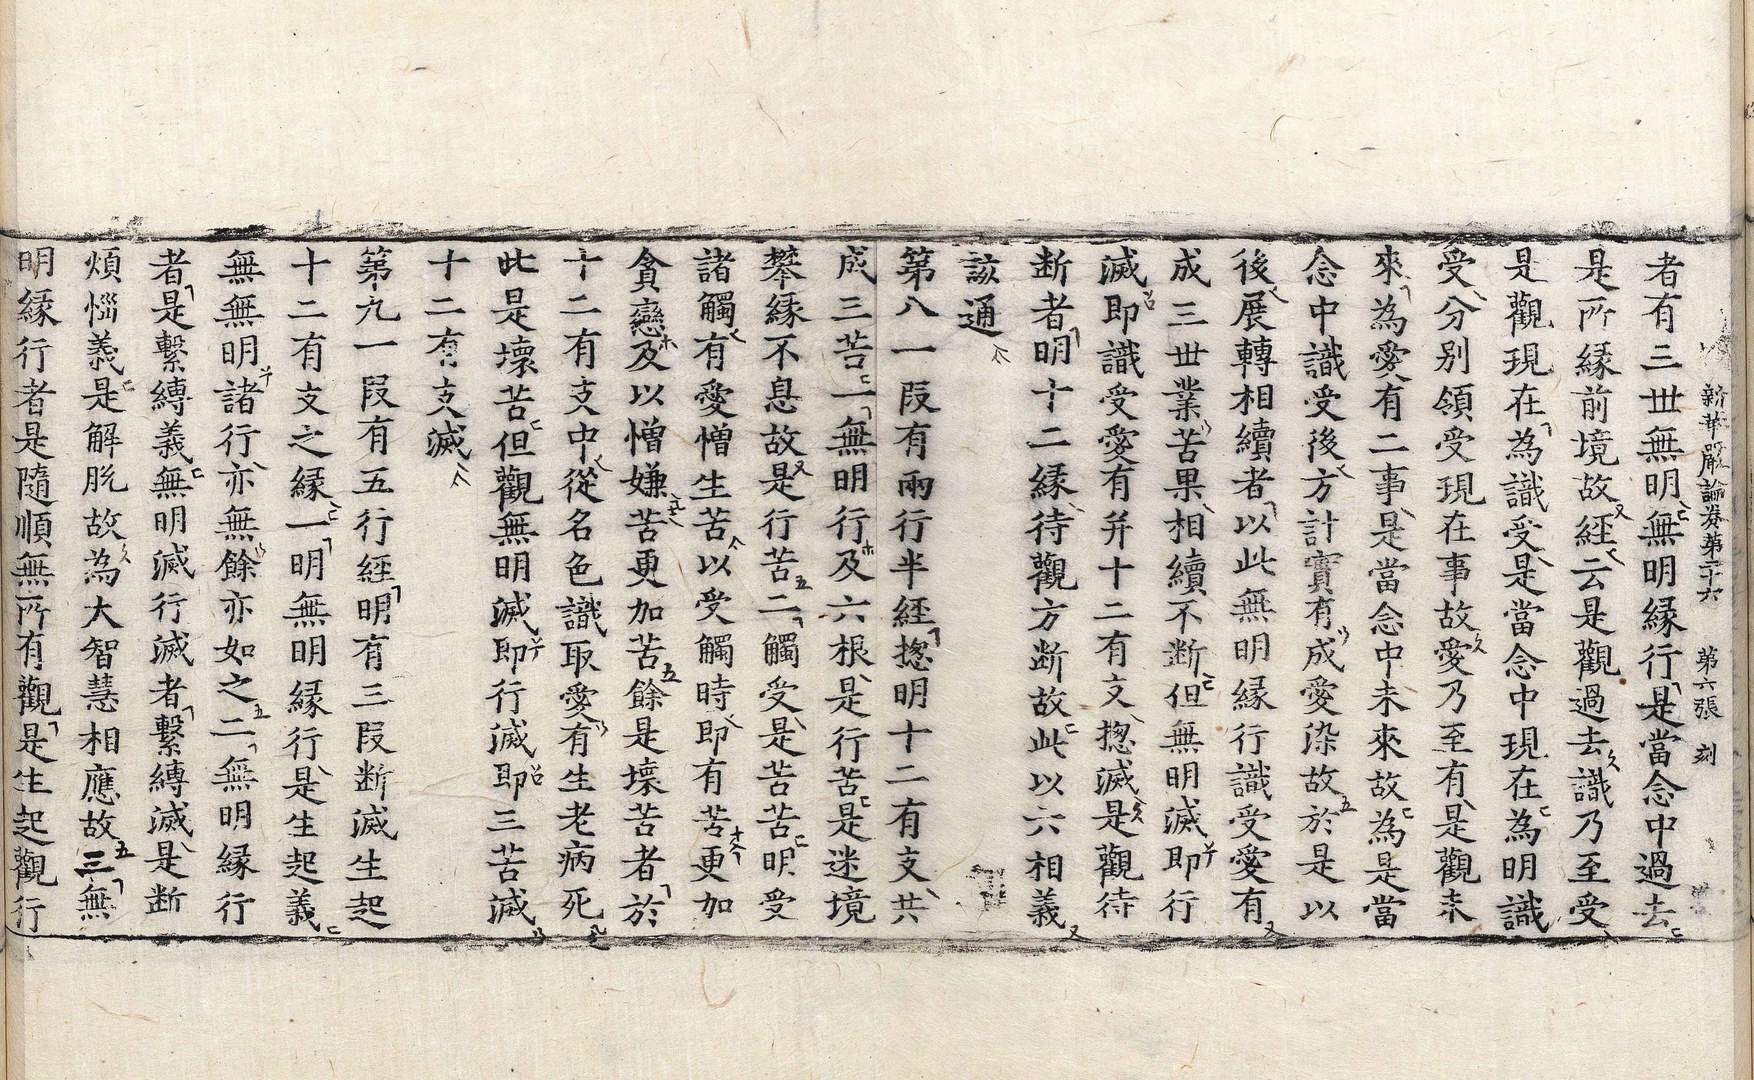 新華嚴論卷第二十六　第六張　刻
者有三世無明無明緣行是當念中過去
是所緣前境故經云是觀過去識乃至受
是觀現在為識受是當念中現在為明識
受分別領受現在事故愛乃至有是觀未
來為愛有二事是當念中未來故為是當
念中識受後方計實有成愛染故於是以
後展轉相續者以此無明緣行識受愛有
成三世業苦果相續不断但無明滅即行
滅即識受愛有并十二有支揔滅是觀待
断者明十二緣待觀方断故此以六相義
該通
第八一段有兩行半經揔明十二有支共
成三苦一無明行及六根是行苦是迷境
攀緣不息故是行苦二觸受是苦苦明受
諸觸有愛憎生苦以受觸時即有苦更加
貪戀及以憎嫌苦更加苦餘是壞苦者於
十二有支中從名色識取愛有生老病死
此是壞苦但觀無明滅即行滅即三苦滅
十二有支滅
第九一段有五行經明有三段断滅生起
十二有支之緣一明無明緣行是生起義
無無明諸行亦無餘亦如之二無明緣行
者是繫縛義無明滅行滅者繫縛滅是断
煩惱義是解脱故為大智慧相應故三無
明緣行者是隨順無所有觀是生起觀行